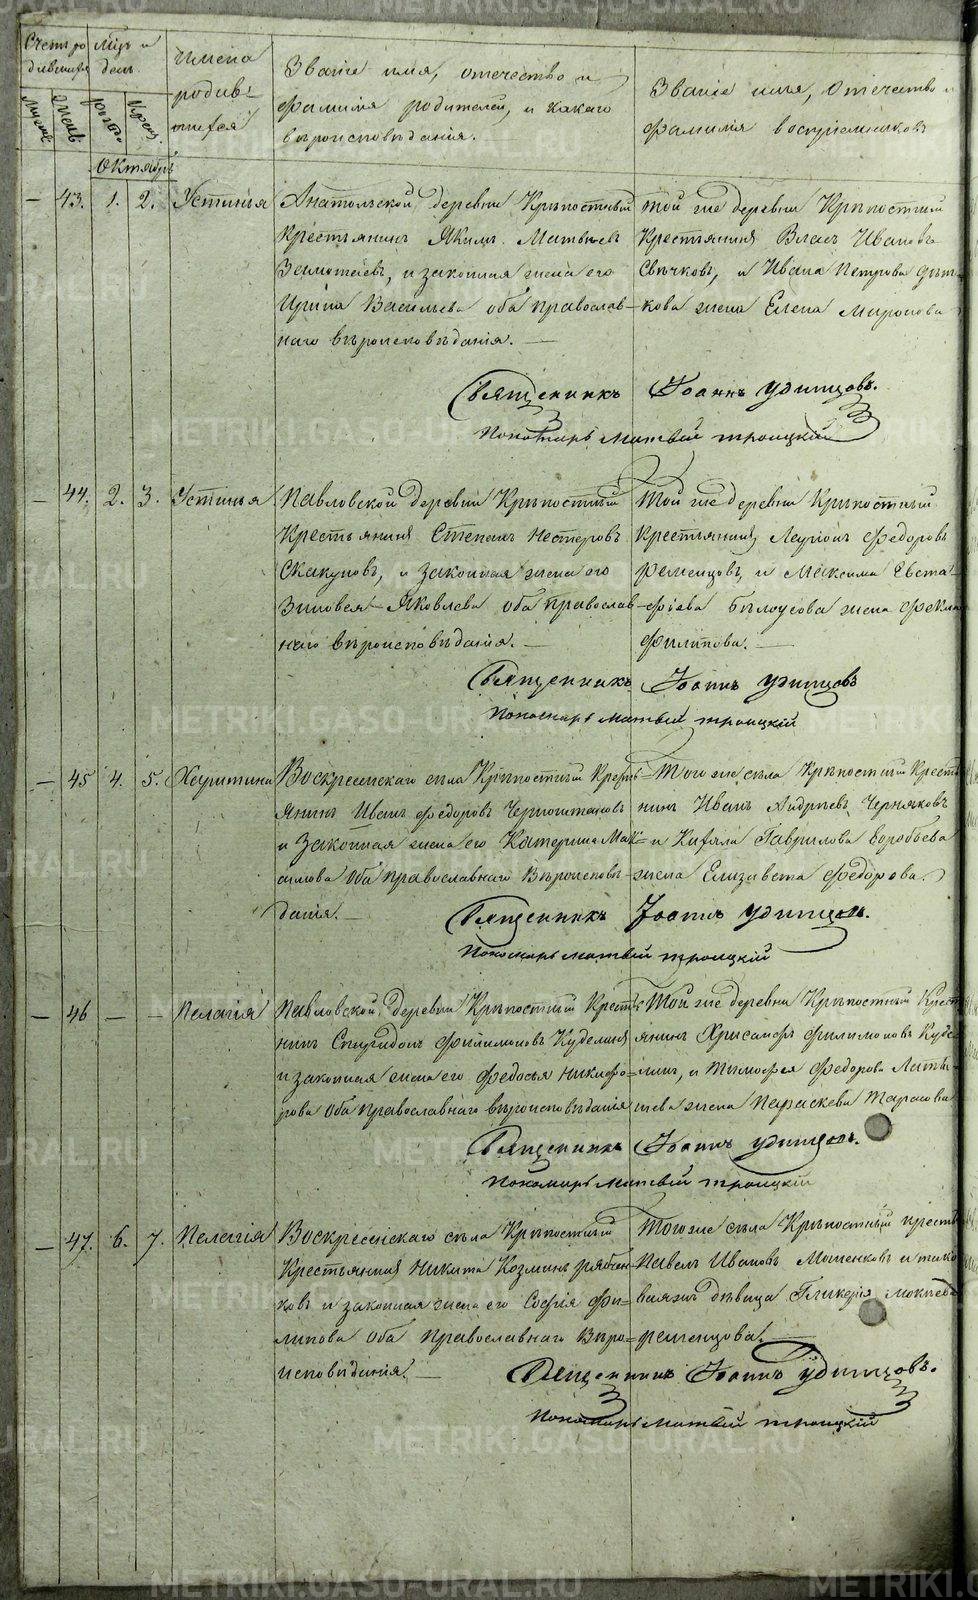 METRIKI.GASO-URAL.RU
Счетъ ро
дившихся
Мѣць и
день.
Имена
родив-
шихся
Званіе имя, отечество и
фамилія родителей, и какого
вѣроисповѣданія.
Званіе имя, отечество и
фамилія воспріемниковъ
Мужес.
Женс.
рожд.
Крещ.
Октябрь
— 43. 1. 2. Устинья
Анатольской деревни Крѣпостный
Крестьянинъ Якимъ Матвѣевъ
Замотаевъ, и законная жена его
Ирина Васильева оба православ-
наго вѣроисповѣданія. —
той же деревни Крѣпостный
Крестьянинъ Власъ Ивановъ
Свѣчковъ, и Ивана Петрова
кова жена Елена Миронова
Священникъ Іоаннъ Удинцовъ.
Пономарь Матвѣй Троицкій
— 44. 2. 3. Устинья
Павловской деревни Крѣпостный
Крестьянинъ Степанъ Нестеровъ
Скакуновъ, и законная жена его
Зиновея Яковлева оба православ
наго вѣроисповѣданія. —
Той же деревни Крѣпостный
Крестьянинъ Ларіонъ Федоровъ
Ременцовъ, и Максима Евста-
фіева Бѣлоусова жена Фекла
Филипова. —
Священникъ Іоаннъ Удинцовъ
Пономарь Матвѣй Троицкій
— 45 4. 5. Харитина
Воскресенскаго села Крѣпостный Кресть-
янинъ Иванъ Федоровъ
и законная жена его Катерина Мак-
симова оба православнаго Вѣроисповѣ-
данія. —
Того же села Крѣпостный Кресть
нинъ Иванъ Андреевъ Черняковъ
и Кирила Гаврилова Воробьева
жена Елизавета Федорова.
Священникъ Іоаннъ Удинцовъ.
Пономарь Матвѣй Троицкій
— 46 — — Пелагія
Павловской деревни Крѣпостный Крестья-
нинъ Спиридонъ Филимоновъ Куделинъ
и законная жена его Федосья Никифо-
рова оба православнаго вѣроисповѣданія
Той же деревни Крѣпостный Кресть
янинъ Хрисанфъ Филимоновъ Куде-
линъ, и Тимофея Федорова Латы-
шева жена Параскева Тарасова
Священникъ Іоаннъ Удинцовъ.
Пономарь Матвѣй Троицкій
— 47. 6. 7. Пелагія
Воскресенскаго села Крѣпостный
Крестьянинъ Никита Козминъ Рябен-
ковъ и законная жена его Софія Фи-
липова оба православнаго Вѣро-
исповѣданія. —
Того же села Крѣпостный кресть
Павелъ Ивановъ Мошенковъ и тако
ваяжъ дѣвица Гликерія Мокіева
Ременцова. —
Священникъ Іоаннъ Удинцовъ.
Пономарь Матвѣй Троицкій